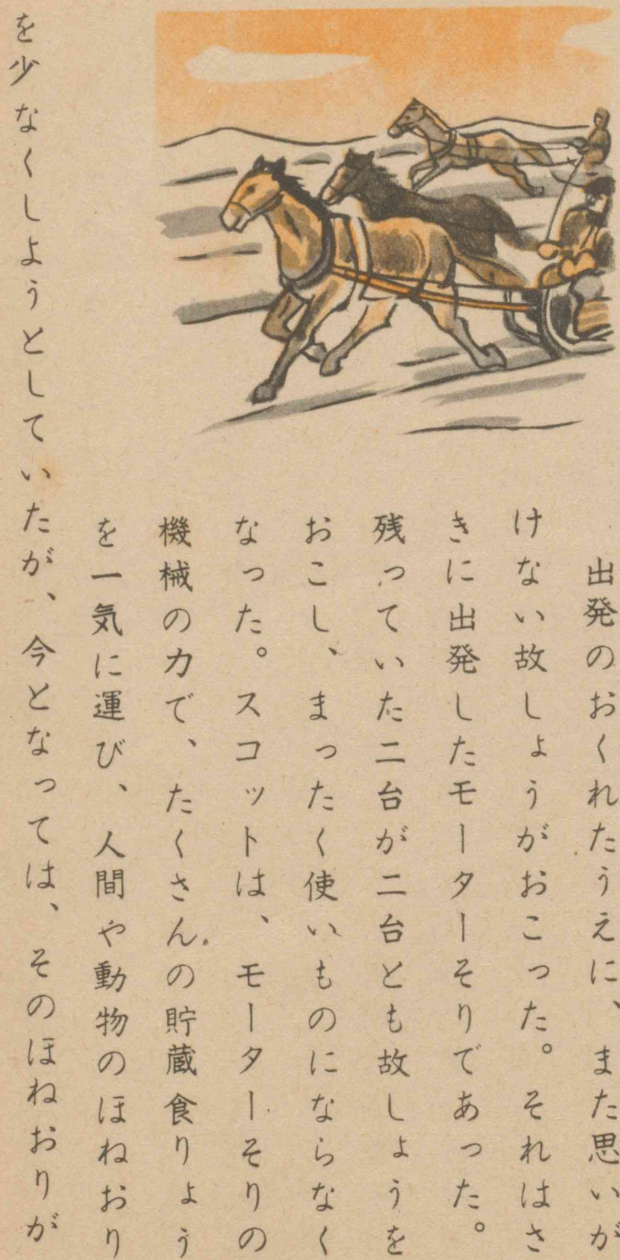 出発のおくれたうえに、また思いが
けない故しょうがおこった。それはさ
きに出発したモーターそりであった。
残っていた二台が二台とも故しょうを
おこし、まったく使いものにならなく
なった。スコットは、モーターそりの
機械の力で、たくさんの貯蔵食りょう
を一気に運び、人間や動物のほねおり
を少なくしようとしていたが、今となっては、そのほねおりが